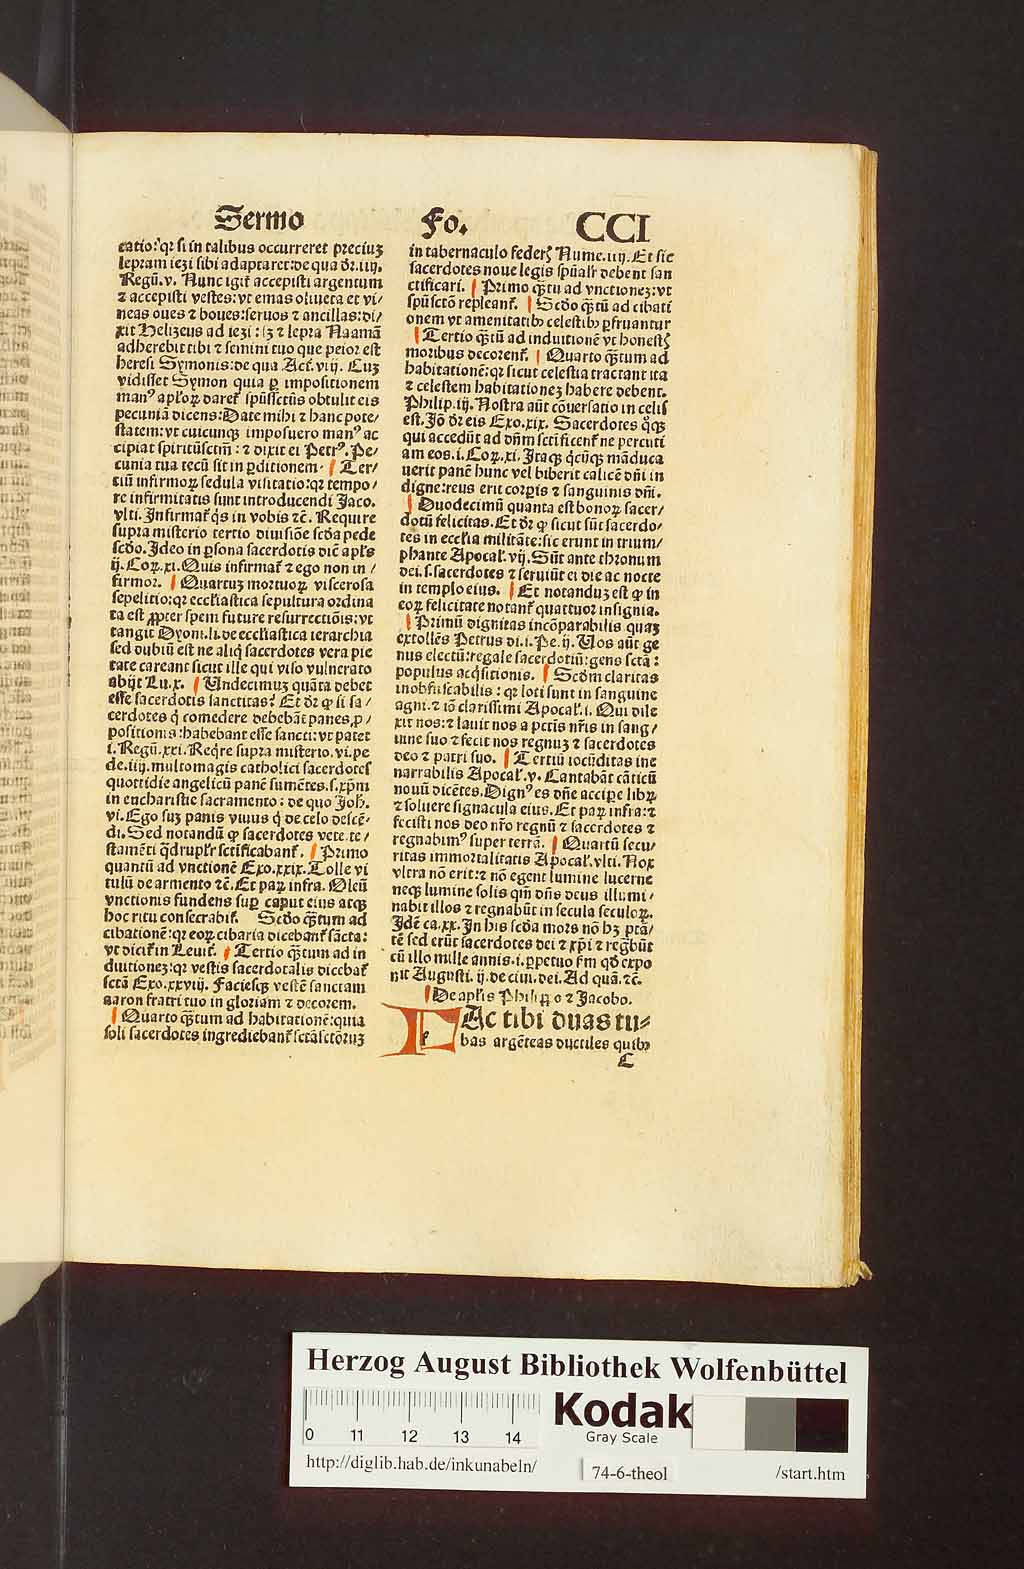 Sermo Fo. CCI
catio: qꝛ si in talibus occurreret preciuȝ
lepram iezi sibi adaptaret: de qua dr̄. iiij.
Regū. v. Nunc igit᷑ accepisti argentum
⁊ accepisti vestes: vt emas oliueta et vi/
neas oues ⁊ boues: seruos ⁊ ancillas: di/
xit Helizeus ad iezi: sȝ ⁊ lepra Naamā
adherebit tibi ⁊ semini tuo que peior est
heresi Symonis: de qua Act᷑. viij. Cuȝ
vidisset Symon quia ꝑ impositionem
manꝰ apl'oꝝ daret᷑ spūssctūs obtulit eis
pecuniā dicens: Date mihi ⁊ hanc pote/
statem: vt cuicunqꝫ imposuero manꝰ ac
cipiat spiritūsctm̄: ⁊ dixit ei Petrꝰ. Pe/
cunia tua tecū sit in ꝑditionem. Ter/
tiū infirmoꝝ sedula visitatio: qꝛ tempo/
re infirmitatis sunt introducendi Jaco.
vlti. Infirmat᷑ q̇s in vobis ⁊c̄. Require
supra misterio tertio diuisiōe sc̄da pede
sc̄do. Ideo in ꝑsona sacerdotis dic̄ apl's
ij. Coꝝ. xi. Quis infirmat᷑ ⁊ ego non in/
firmor. Quartuȝ mortuoꝝ viscerosa
sepelitio: qꝛ eccl'iastica sepultura ordina
ta est ꝓpter spem future resurrectiōis: vt
tangit Dyoni. li. de eccl'iastica ierarchia
sed dubiū est ne aliq̇ sacerdotes vera pie
tate careant sicut ille qui viso vulnerato
abijt Lu. x. Undecimuȝ quāta debet
esse sacerdotis sanctitas? Et dr̄ ꝙ si sa/
cerdotes q̇ comedere debebāt panes ꝓ/
positionis: habebant esse sancti: vt patet
i. Regū. xxi. Req̇re supra misterio. vi. pe
de. iiij. multomagis catholici sacerdotes
quottidie angelicū panē sumētes. s. xp̄m
in eucharistie sacramento: de quo Joh̄.
vi. Ego suȝ panis viuus q̇ de celo descē-
di. Sed notandū ꝙ sacerdotes vete. te/
stamēti q̄drupl'r sctificabant᷑. Primo
quantū ad vnctionē Exo. xxix. Tolle vi
tulū de armento ⁊c̄. Et paꝝ infra. Oleū
vnctionis fundens suꝑ caput eius atqꝫ
hoc ritu consecrabit᷑. Sc̄do q̄ꝫtum ad
cibationē: qꝛ eoꝝ cibaria dicebant᷑ sācta:
vt dicit᷑ in Leuit᷑. Tertio q̄ꝫtum ad in
duitionez: qꝛ vestis sacerdotalis dicebat᷑
sctā Exo. xxviij. Faciesqꝫ vestē sanctam
aaron fratri tuo in gloriam ⁊ decorem.
Quarto q̄ꝫtum ad habitationē: quia
soli sacerdotes ingrediebant᷑ sctāsctōruȝ
in tabernaculo federꝭ Nume. iiij. Et sic
sacerdotes noue legis spūalr̄ debent san
ctificari. Primo q̄ꝫtū ad vnctionez: vt
spūsctō repleant᷑. Sc̄do q̄ꝫtū ad cibati
onem vt amenitatibꝫ celestibꝫ ꝑfruantur
Tertio q̄ꝫtū ad induitionē vt honestꝭ
moribus decorent᷑. Quarto q̄ꝫtum ad
habitationē: qꝛ sicut celestia tractant ita
⁊ celestem habitationeȝ habere debent.
Philip. iij. Nostra aūt cōuersatio in celis
est. Iō dr̄ eis Exo. xix. Sacerdotes q̊qꝫ
qui accedūt ad dn̄m sctificent᷑ ne percuti
am eos. i. Coꝝ. xi. Itaqꝫ q̇cūqꝫ māduca
uerit panē hunc vel biberit calicē dn̄i in
digne: reus erit corꝑis ⁊ sanguinis dn̄i.
Duodecimū quanta est bonoꝝ sacer/
dotū felicitas. Et dr̄ ꝙ sicut sūt sacerdo/
tes in eccl'ia militāte: sic erunt in trium/
phante Apocal'. vij. Sūt ante thronum
dei. s. sacerdotes ⁊ seruiūt ei die ac nocte
in templo eius. Et notanduȝ est ꝙ in
eoꝝ felicitate notant᷑ quattuor insignia.
Primū dignitas incōparabilis quaȝ
extollēs Petrus di. i. Pe. ij. Uos aūt ge
nus electū: regale sacerdotiū: gens sctā:
populus acq̇sitionis. Sc̄dm claritas
inobfuscabilis: qꝛ loti sunt in sanguine
agni. ⁊ iō clarissimi Apocal'. i. Qui dile
xit nos: ⁊ lauit nos a pctīs nr̄is in sang/
uine suo ⁊ fecit nos regnuȝ ⁊ sacerdotes
deo ⁊ patri suo. Tertiū iocūditas ine
narrabilis Apocal'. v. Cantabāt cāticū
nouū dicētes. Dignꝰ es dn̄e accipe librꝝ
⁊ soluere signacula eius. Et paꝝ infra: ⁊
fecisti nos deo nr̄o regnū ⁊ sacerdotes ⁊
regnabimꝰ super terrā. Quartū secu/
ritas immortalitatis Apocal'. vlti. Nox
vltra nō erit: ⁊ nō egent lumine lucerne
neqꝫ lumine solis qm̄ dn̄s deus illumi/
nabit illos ⁊ regnabūt in secula seculoꝝ.
Idē ca. xx. In his sc̄da mors nō hȝ ptā/
tē sed erūt sacerdotes dei ⁊ xp̄i ⁊ regn̄būt
cū illo mille annis. i. ꝑpetuo fm̄ qd̄ expo
nit Augusti. ij. de ciui. dei. Ad quā. ⁊c̄.
De apl'is Philippo ⁊ Jacobo.
FAc tibi duas tu-
bas argēteas ductiles quibꝫ
C
Herzog August Bibliothek Wolfenbüttel
0 11 12 13 14
Kodak
Gray Scale
http://diglib.hab.de/inkunabeln/ 74-6-theol /start.htm